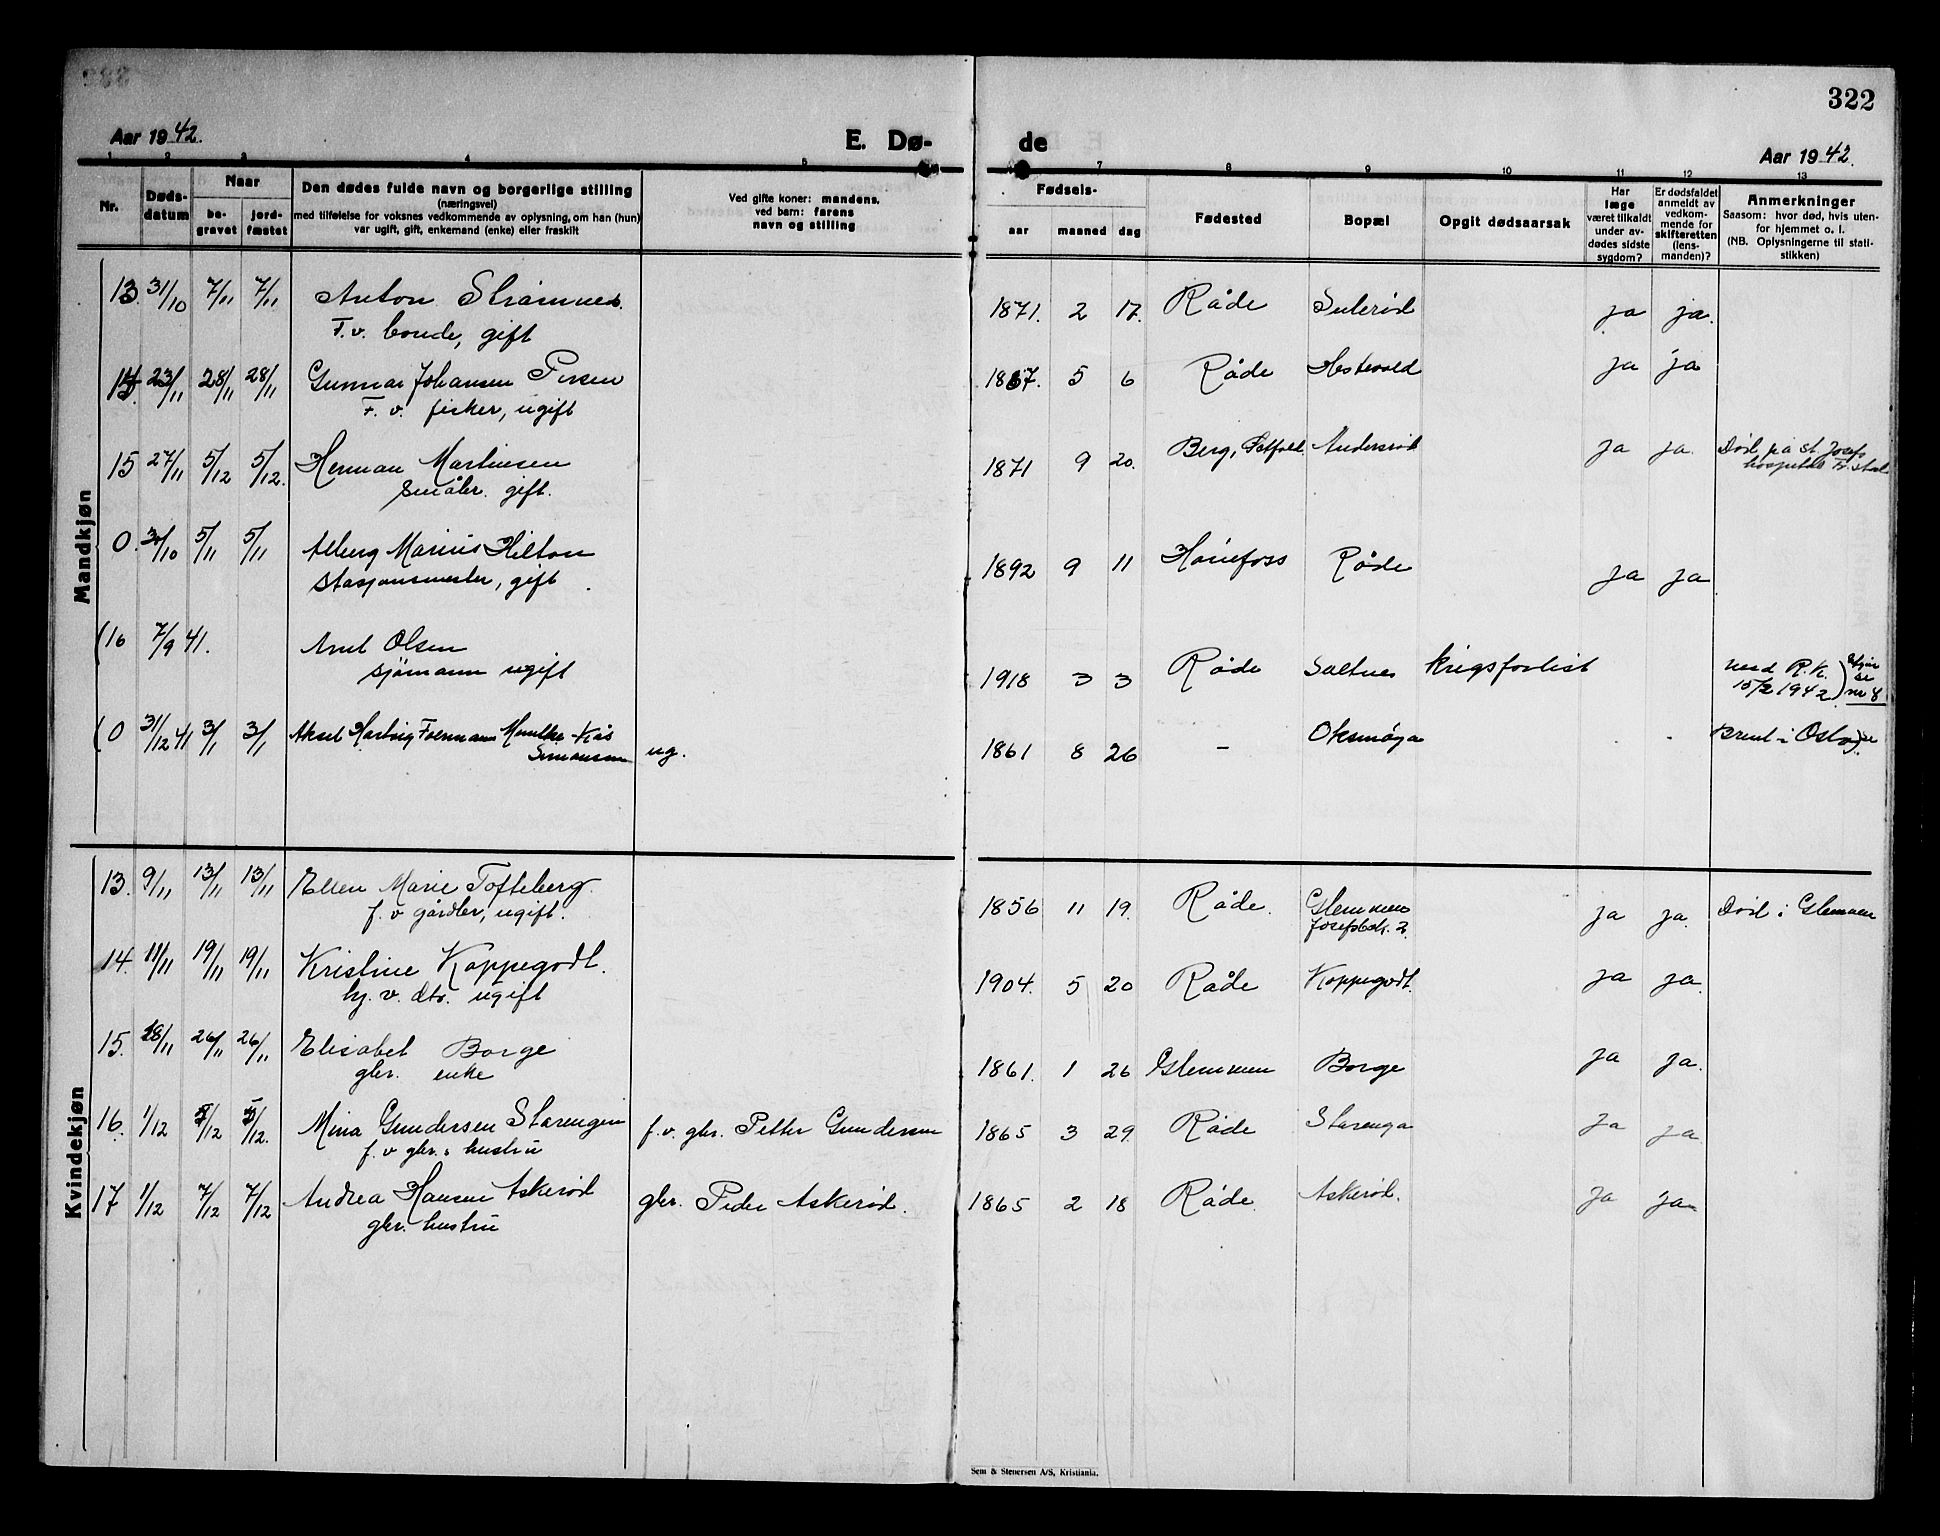 322
Aar 1942.
E. Dø-
de
Aar 1942.
1 2 3 4 5 7 8 9 10 11 12 13
Nr.
Døds-
datum
Naar
be-
gravet
jord-
fæstet
Den dødes fulde navn og borgerlige stilling
(næringsvei)
med tilføielse for voksnes vedkommende av oplysning, om han (hun)
var ugift, gift, enkemand (enke) eller fraskilt
Ved gifte koner: mandens,
ved barn: farens
navn og stilling
Fødsels-
aar maaned dag
Fødested
Bopæl
Opgit dødsaarsak
Har
læge
været tilkaldt
under av-
dødes sidste
sygdom?
Er dødsfaldet
anmeldt av
vedkom-
mende for
skifteretten
(lens-
manden)?
Anmerkninger
Saasom: hvor død, hvis uten-
for hjemmet o. l.
(NB. Oplysningerne til stati-
stikken)
Mandkjøn
13. 31/10 7/11 7/11 Anton Strømnes. 1871. 2 17. Råde Sulerød ja ja.
F.v. bonde, gift
14 23/11 28/11 28/11 Gunnar Johansen 1867. 5 6 Råde ja ja
F. v. fisker, ugift
15 27/11 5/12 5/12. Herman Martinsen 1871 9 20. Berg, Østfold Andersrød ja ja. Død på St. Josefs
småbr. gift. hospital Fr.stad
0. 30/10 5/11 5/11 Marius Hilton 1892 9 11 Hønefoss Råde ja ja
stasjonsmester, gift.
(16 7/9 41. Arnt Olsen 1918 3 3 Råde Saltnes krigsforlist med R.K.
sjømann ugift 15/2 1942) se nr 8
(0 31/12 41 3/1 3/1 Aksel Hartvig Kås 1861 8 26 - Oksmøya Brent i Oslo
Simonsen ug.
Kvindekjøn
13. 9/11 13/11 13/11 Ellen Marie Tofteberg. 1856 11 19. Råde. Glemmen ja ja. Død i Glemmen
f. v gårdbr, ugift. 2.
14. 11/11 19/11 19/11 Kristine Koppegodt. 1904. 5 20 Råde Koppegodt. ja ja.
hj. v. dtr. ugift
15. 18/11 26/11 26/11 Elisabet Borge 1861. 1 26 Glemmen Borge ja ja.
gbr. enke
16. 1/12 5/12 5/12. Mina Gundersen Starengen f. v. gbr. Petter Gundersen 1865 3 29. Råde Starenga ja ja
f. v gbr.s hustru
17 1/12 7/12 7/12 Andrea Hansen Askerød gbr. Peder Askerød. 1865 2 18 Råde. Askerød. ja ja
gbr. hustru
Sem & Stenersen A/S, Kristiania.